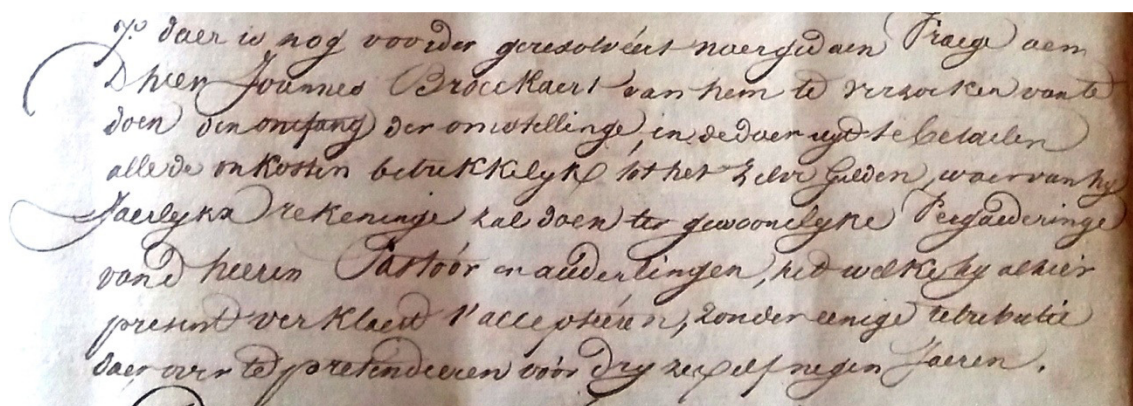 7.° daer is nog voorder geresolvéért naer gedaen Vraege aen
D'heer Joannes Broeckaert van hem te versoeken van te
doen den omfang der omstellinge, in de daer uyt te betaelen
alle de onkosten betrekkelyk tot het zelve Gulden, waer van hy
Jaerlykx rekeninge zal doen ter gewoonelyke Vergaederinge
van d'heeren Pastóór en aúderlingen, het welke hy alhier
present verklaert t'accepteren, zonder eenige retributie
daer over te pretenderen vóór dry zes of negen Jaeren.